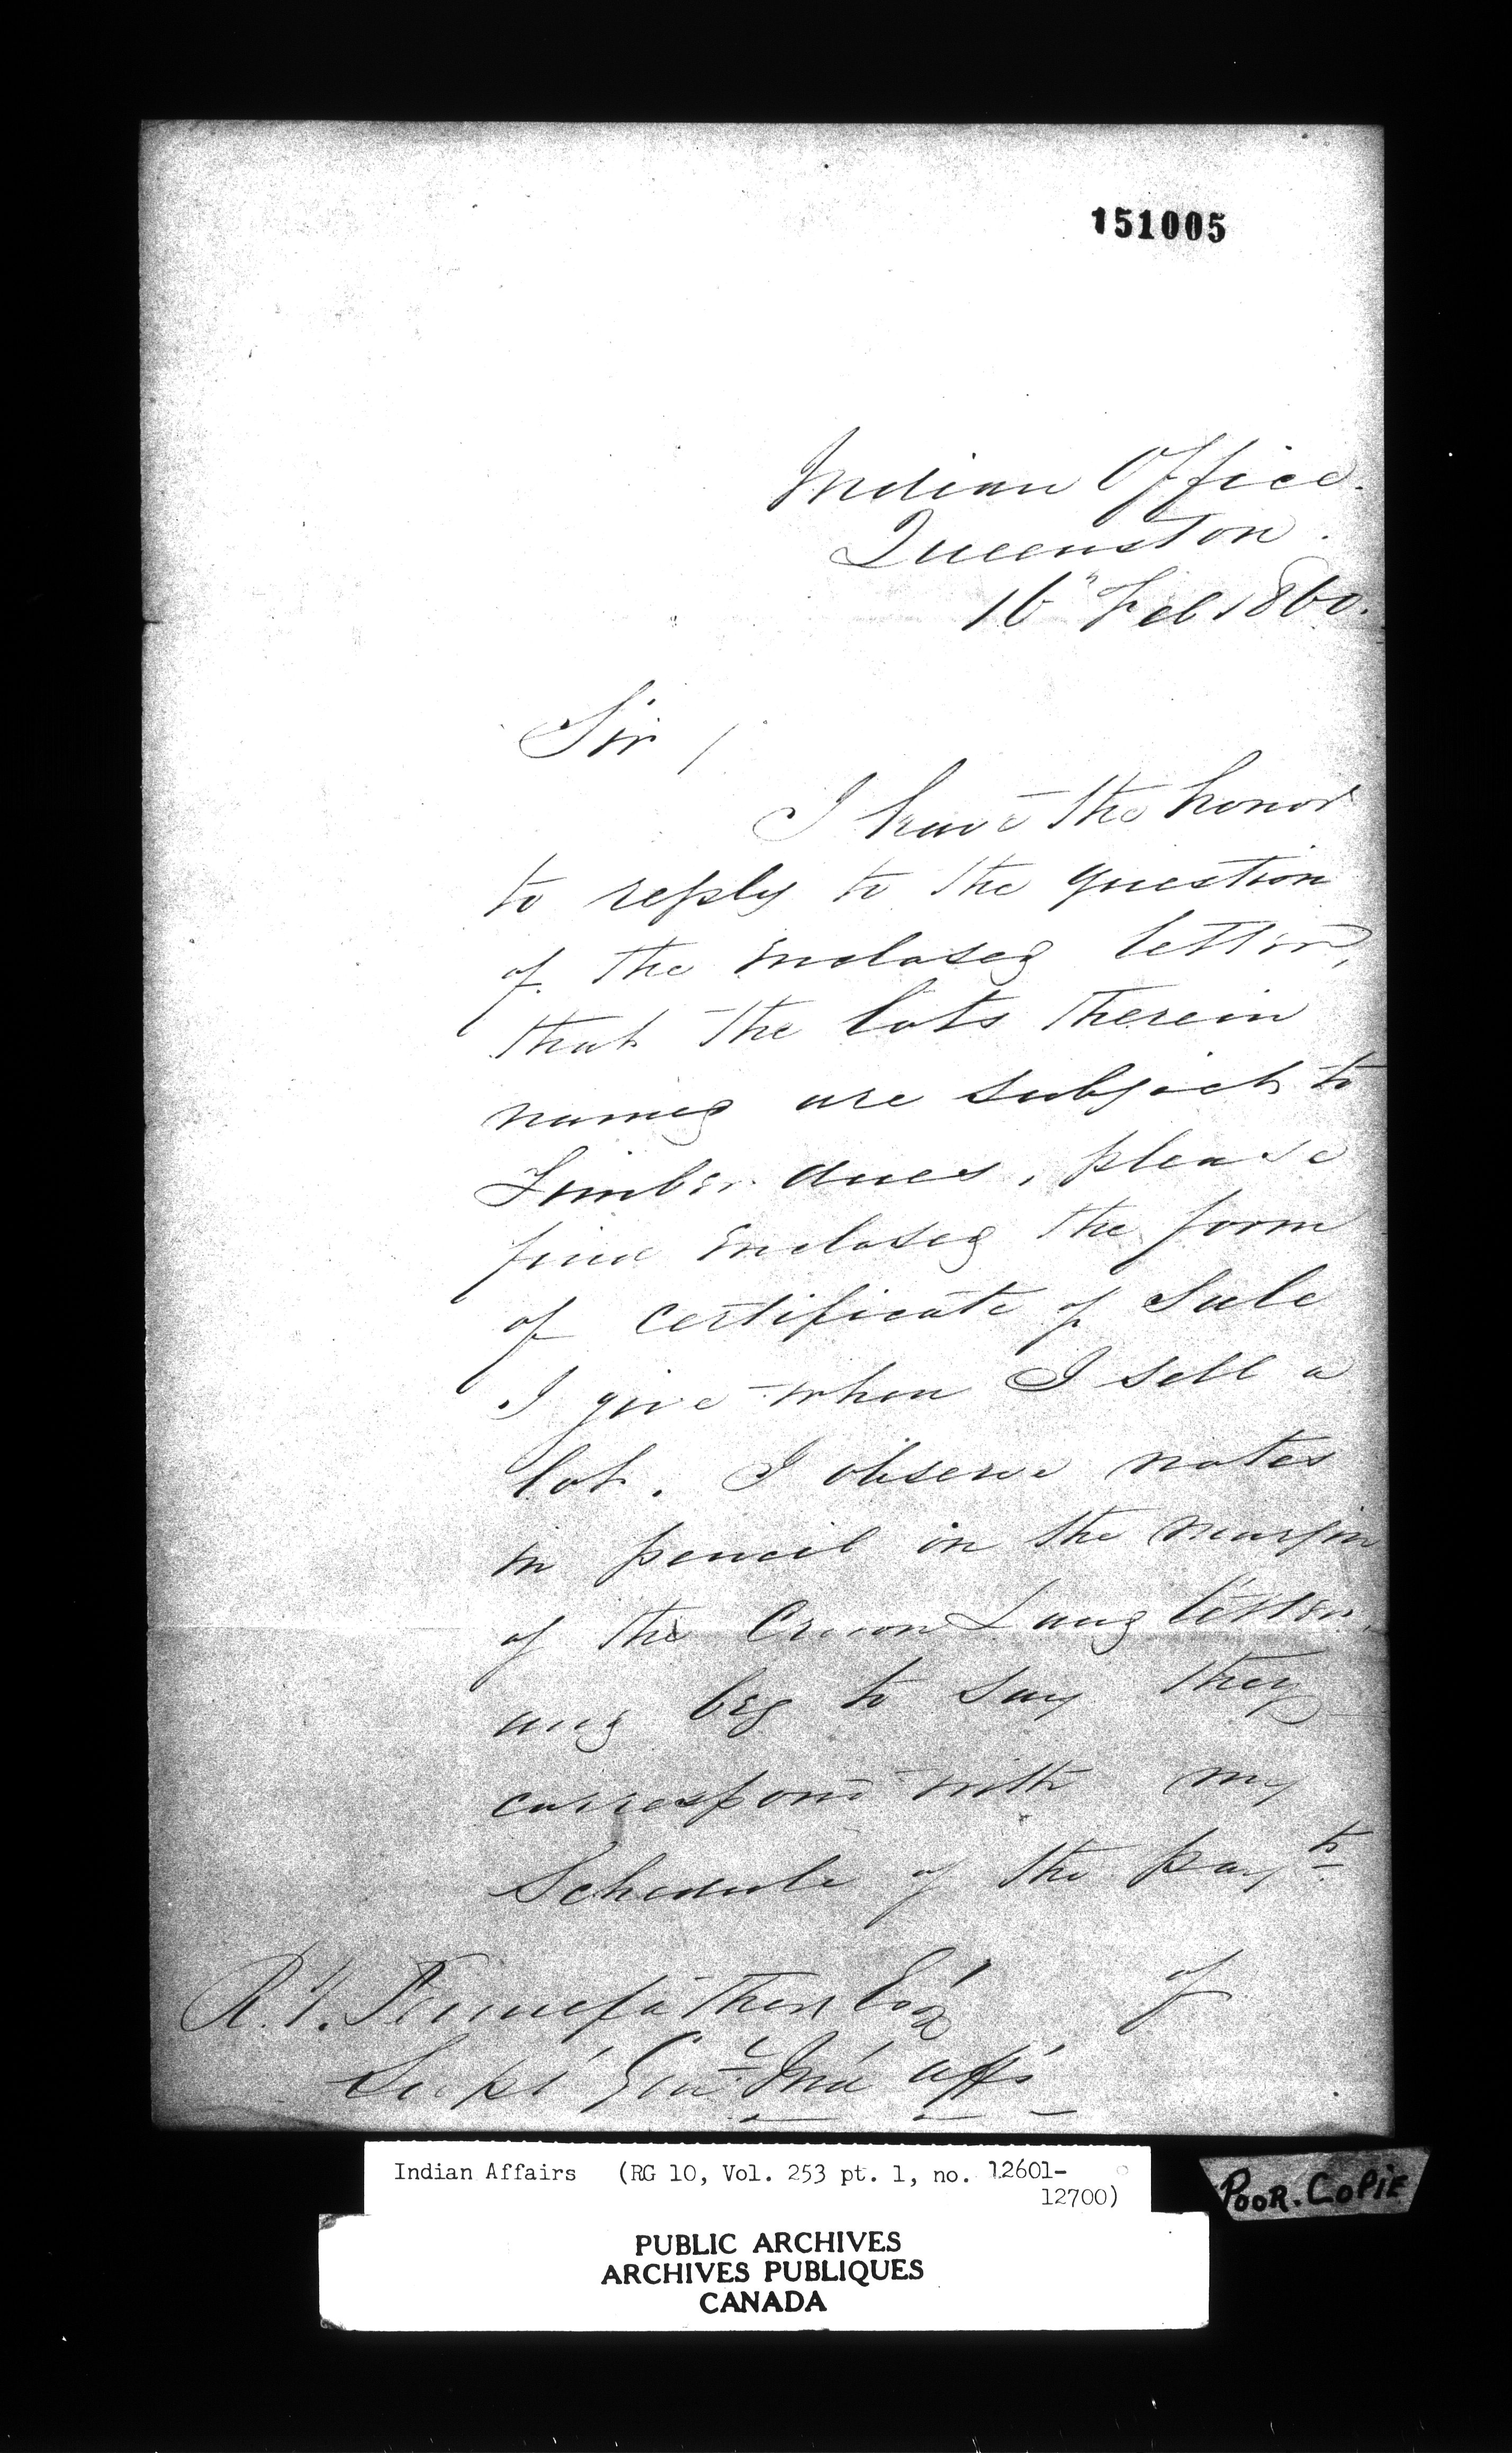 151005
Indian Office.
Queenston.
16" Feb 1860.
Sir /
I have the honor
to reply to the question
of the enclosed letter,
that the lots therein
named are subject to
Timber dues, please
find enclosed the form
of certificate of Sale
I give when I sell a
lot. I observe notes
in pencil in the margin
of the Crown Land letter,
and beg to say they
correspond with my
Schedule of the pay ts
of
R.T. Pennefather Esq
Supt Genl Ind affs
Indian Affairs (RG 10, Vol. 253 pt. 1, no. 12601-
12700)
POOR. COPIE
PUBLIC ARCHIVES
ARCHIVES PUBLIQUES
CANADA